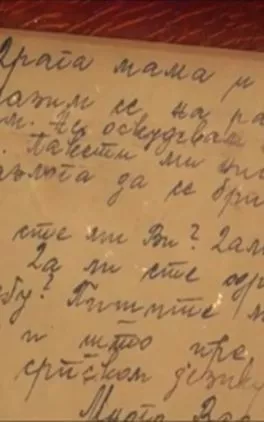 Драга мама и
лазим се на ра
м. Не оскудевам
. Пакети ми
разлога да се бри
сте ми Ви?
Да ли сте
бу? Пишите
и што пре
српском језику
Много Вас